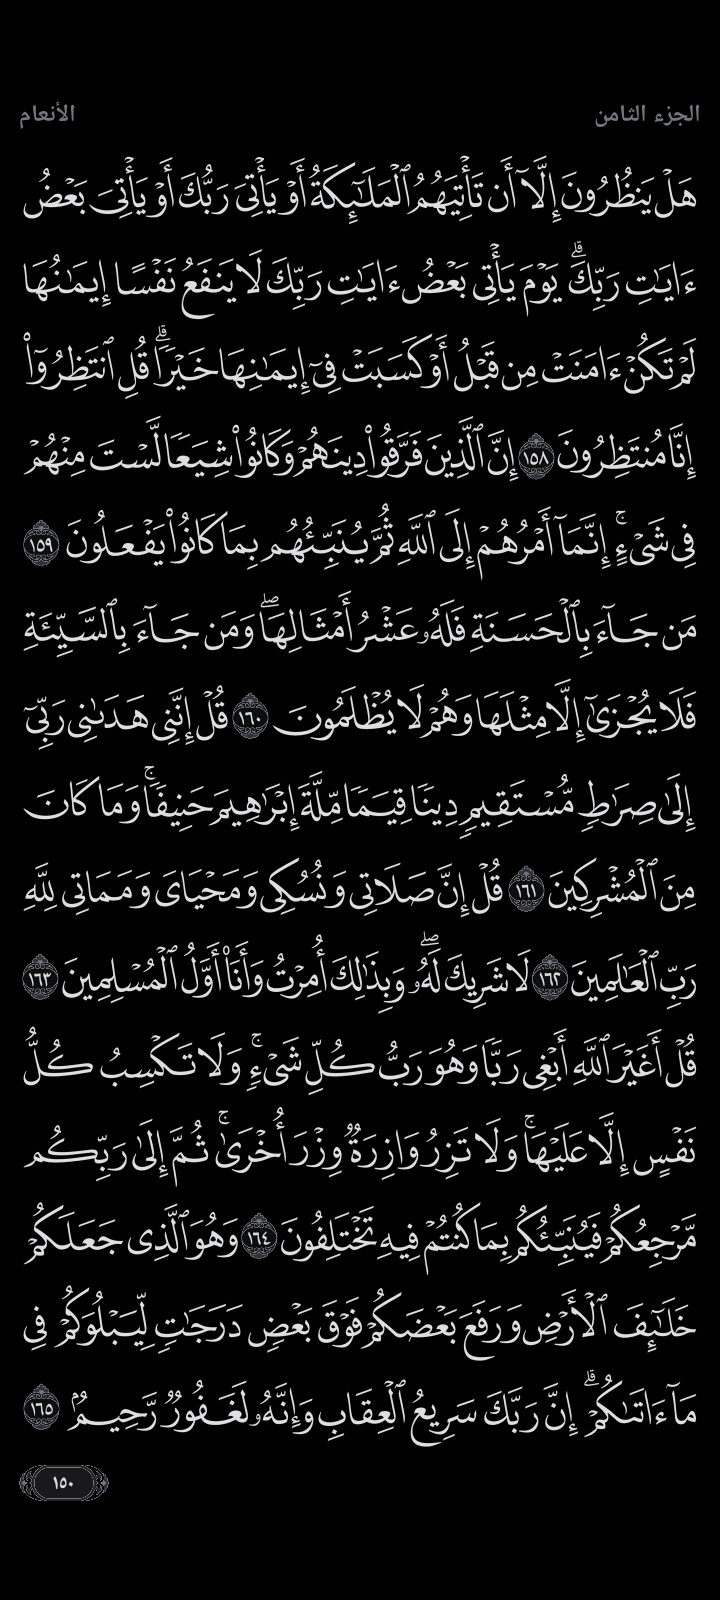 الجزء الثامن
الأنعام
هَلۡ يَنظُرُونَ إِلَّآ أَن تَأۡتِيَهُمُ ٱلۡمَلَٰٓئِكَةُ أَوۡ يَأۡتِيَ رَبُّكَ أَوۡ يَأۡتِيَ بَعۡضُ
ءَايَٰتِ رَبِّكَۗ يَوۡمَ يَأۡتِي بَعۡضُ ءَايَٰتِ رَبِّكَ لَا يَنفَعُ نَفۡسًا إِيمَٰنُهَا
لَمۡ تَكُنۡ ءَامَنَتۡ مِن قَبۡلُ أَوۡ كَسَبَتۡ فِيٓ إِيمَٰنِهَا خَيۡرٗاۗ قُلِ ٱنتَظِرُوٓاْ
إِنَّا مُنتَظِرُونَ ١٥٨ إِنَّ ٱلَّذِينَ فَرَّقُواْ دِينَهُمۡ وَكَانُواْ شِيَعٗا لَّسۡتَ مِنۡهُمۡ
فِي شَيۡءٍۚ إِنَّمَآ أَمۡرُهُمۡ إِلَى ٱللَّهِ ثُمَّ يُنَبِّئُهُم بِمَا كَانُواْ يَفۡعَلُونَ ١٥٩
مَن جَآءَ بِٱلۡحَسَنَةِ فَلَهُۥ عَشۡرُ أَمۡثَالِهَاۖ وَمَن جَآءَ بِٱلسَّيِّئَةِ
فَلَا يُجۡزَىٰٓ إِلَّا مِثۡلَهَا وَهُمۡ لَا يُظۡلَمُونَ ١٦٠ قُلۡ إِنَّنِي هَدَىٰنِي رَبِّيٓ
إِلَىٰ صِرَٰطٖ مُّسۡتَقِيمٖ دِينٗا قِيَمٗا مِّلَّةَ إِبۡرَٰهِيمَ حَنِيفٗاۚ وَمَا كَانَ
مِنَ ٱلۡمُشۡرِكِينَ ١٦١ قُلۡ إِنَّ صَلَاتِي وَنُسُكِي وَمَحۡيَايَ وَمَمَاتِي لِلَّهِ
رَبِّ ٱلۡعَٰلَمِينَ ١٦٢ لَا شَرِيكَ لَهُۥۖ وَبِذَٰلِكَ أُمِرۡتُ وَأَنَا۠ أَوَّلُ ٱلۡمُسۡلِمِينَ ١٦٣
قُلۡ أَغَيۡرَ ٱللَّهِ أَبۡغِي رَبّٗا وَهُوَ رَبُّ كُلِّ شَيۡءٖۚ وَلَا تَكۡسِبُ كُلُّ
نَفۡسٍ إِلَّا عَلَيۡهَاۚ وَلَا تَزِرُ وَازِرَةٞ وِزۡرَ أُخۡرَىٰۚ ثُمَّ إِلَىٰ رَبِّكُم
مَّرۡجِعُكُمۡ فَيُنَبِّئُكُم بِمَا كُنتُمۡ فِيهِ تَخۡتَلِفُونَ ١٦٤ وَهُوَ ٱلَّذِي جَعَلَكُمۡ
خَلَٰٓئِفَ ٱلۡأَرۡضِ وَرَفَعَ بَعۡضَكُمۡ فَوۡقَ بَعۡضٖ دَرَجَٰتٖ لِّيَبۡلُوَكُمۡ فِي
مَآ ءَاتَىٰكُمۡۗ إِنَّ رَبَّكَ سَرِيعُ ٱلۡعِقَابِ وَإِنَّهُۥ لَغَفُورٞ رَّحِيمُۢ ١٦٥
١٥٠